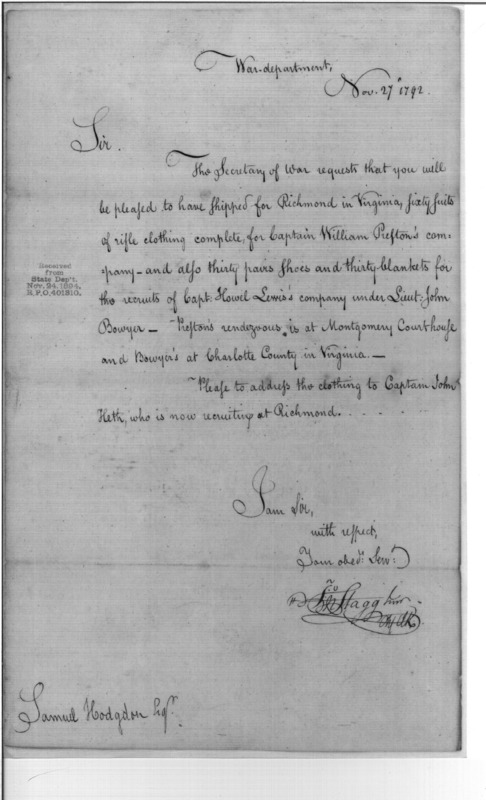 War-department,
Nov. 27th 1792.
Sir.
The Secretary of War requests that you will
be pleased to have shipped for Richmond in Virginia, sixty suits
of rifle clothing complete, for Captain William Preston's com=
=pany - and also thirty pairs shoes and thirty blankets for
the recruits of Capt. Howel Lewis's company under Lieut. John
Bowyer — Prestons rendezvous is at Montgomery Courthouse
and Bowyer's at Charlotte County in Virginia. —
Please to address the clothing to Captain John
Heth, who is now recruiting at Richmond. . . . .
Received
from
State Dep't.
Nov. 24. 1894,
R.P.O. 401310.
I am Sir,
with respect,
Your obedt. Servt.
Jno Stagg Junr.
Samuel Hodgdon Esqr.